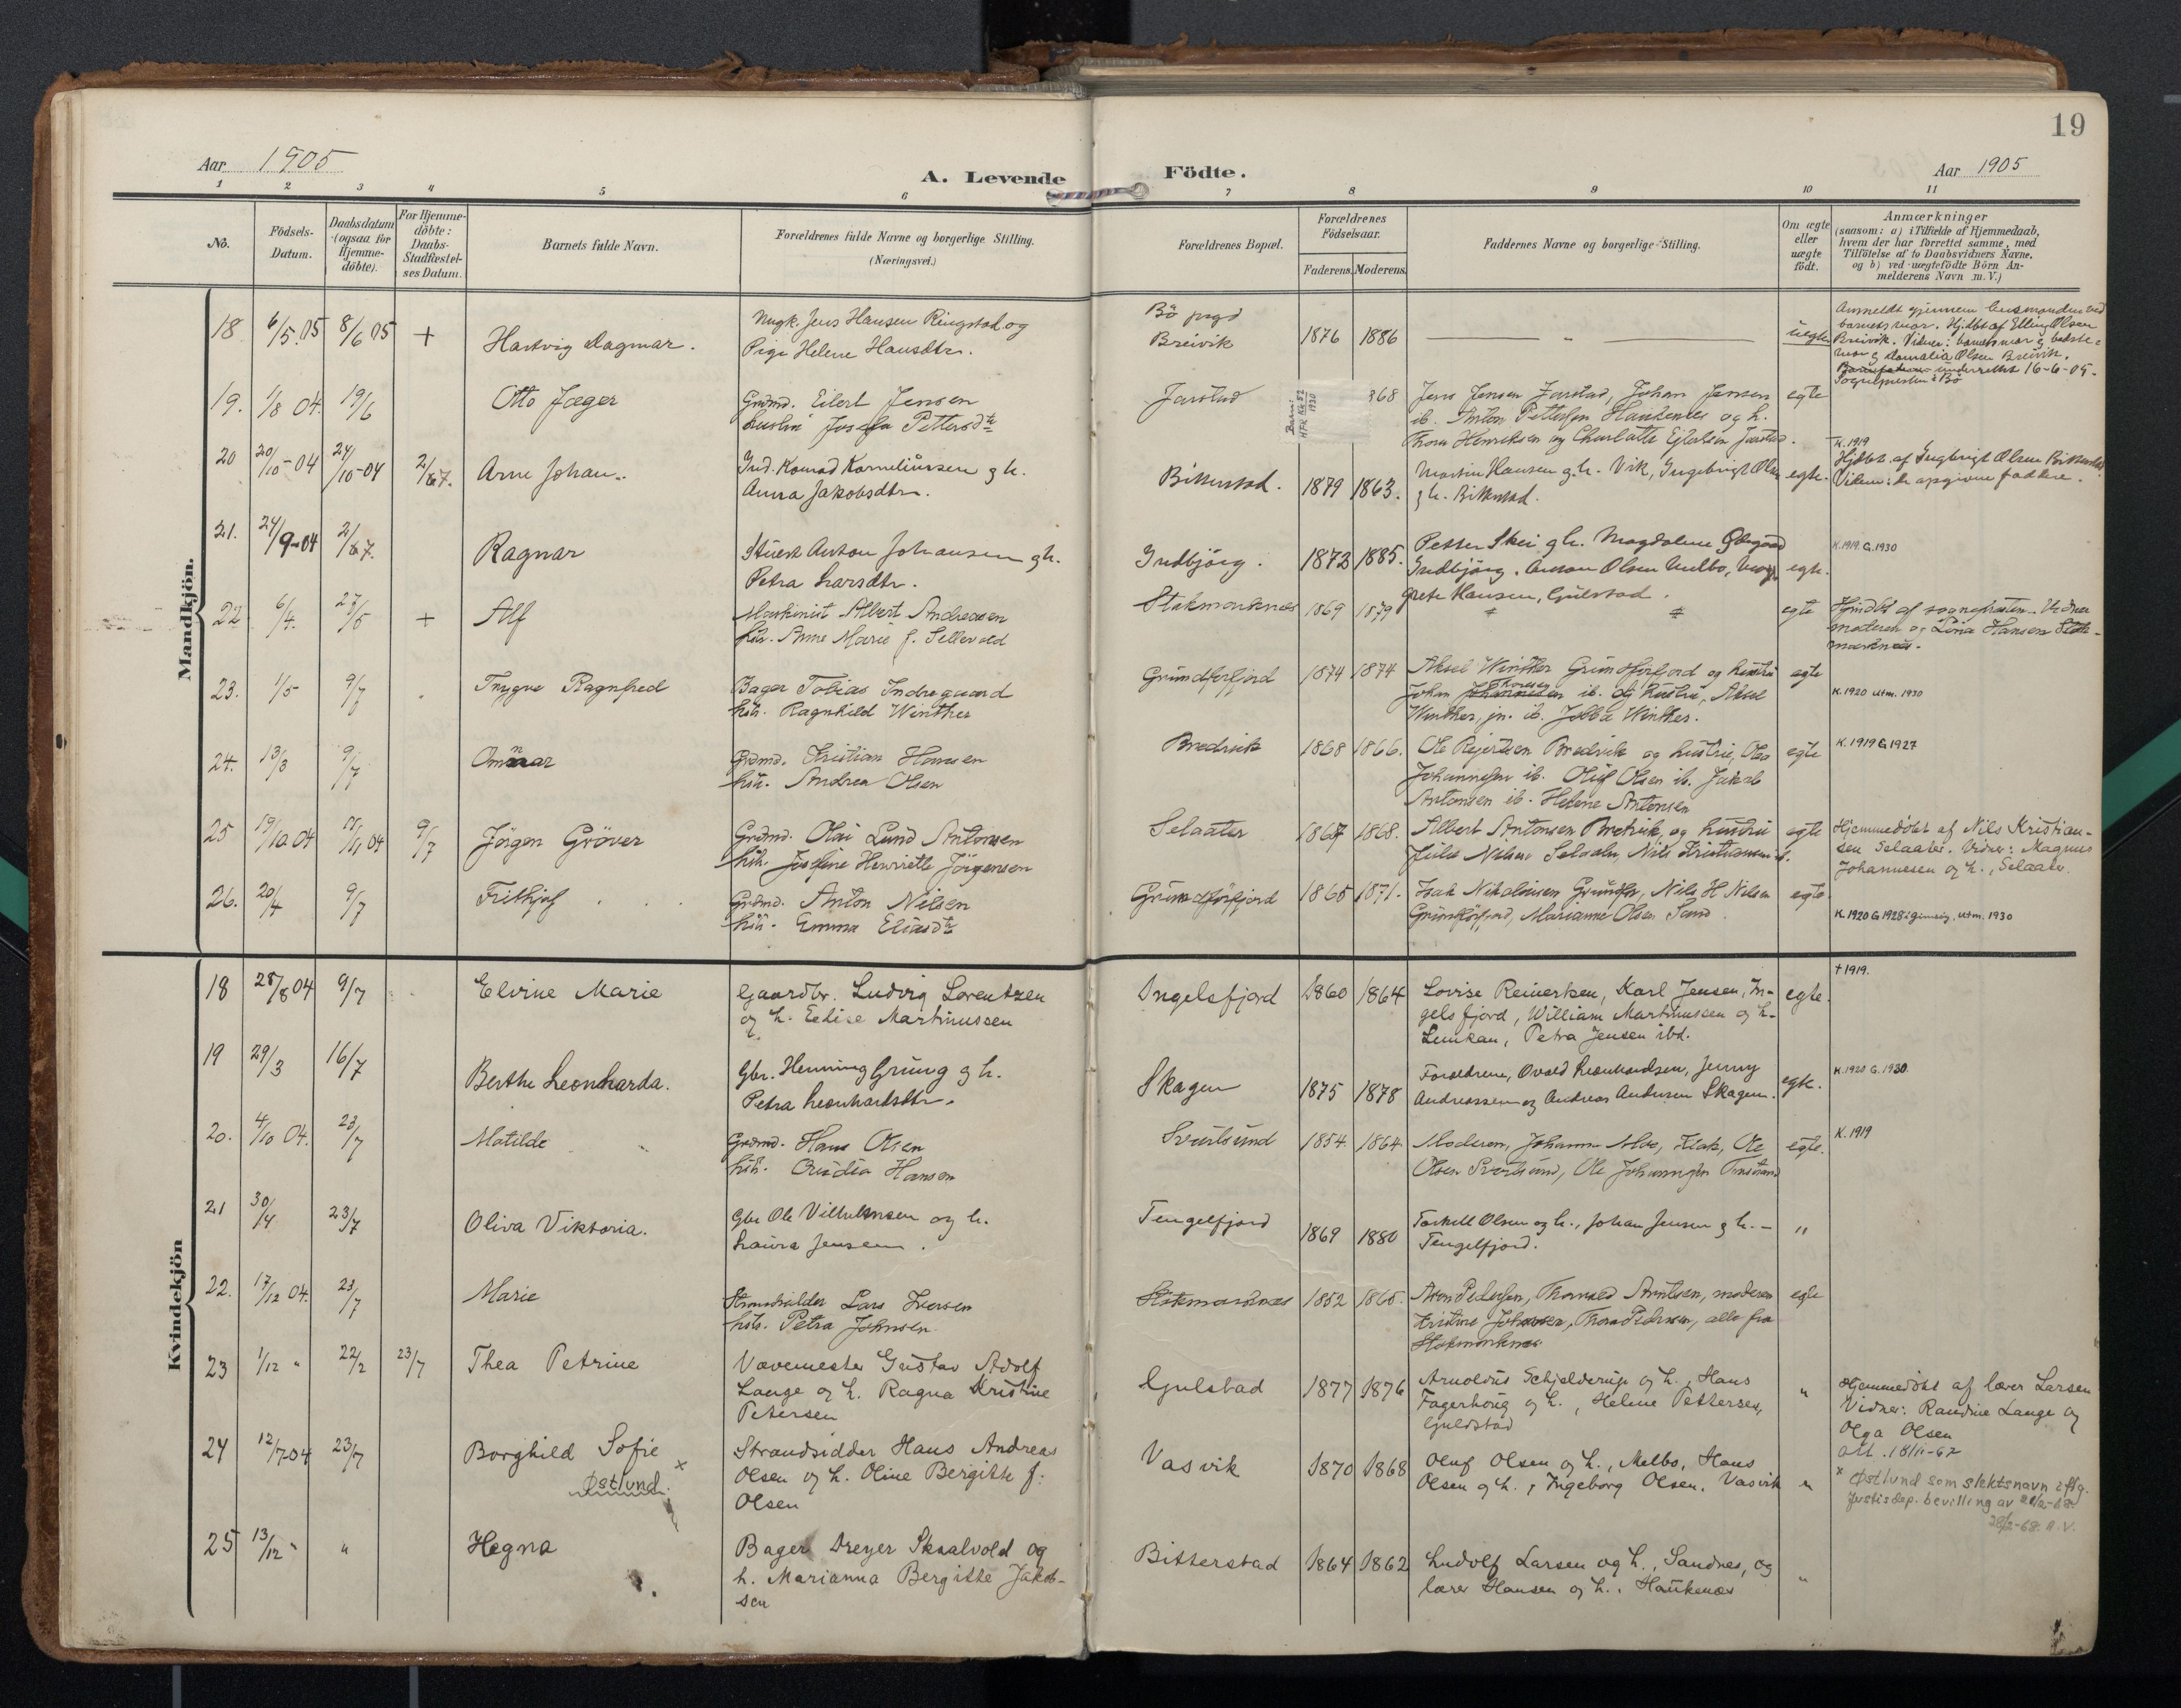 19
Aar 1905
A. Levende Födte.
Aar 1905
1 2 3 4 5 6 7 8 9 10 11
No.
Födsels-Datum.
Daabsdatum (ogsaa for Hjemme-döbte).
For Hjemme-döbte: Daabs-Stadfæstel-ses Datum.
Barnets fulde Navn.
Forældrenes fulde Navne og borgerlige Stilling.
(Næringsvei.)
Forældrenes Bopæl.
Forældrenes Födselsaar.
Faderens. Moderens.
Faddernes Navne og borgerlige Stilling.
Om ægte eller uægte födt.
Anmærkninger
(saasom: a) i Tilfælde af Hjemmedaab,
hvem der har forrettet samme, med
Tilföielse af to Daabsvidners Navne,
og b) ved uægtefödte Börn An-
melderens Navn m.V.)
Mandkjön.
18 6/5.05 8/6 05 + Hartvig Dagmar. Ungk. Jens Hansen Ringstad og
Pige Helene Hansdtr.
Bö prgd
Breivik 1876 1886 — " — uegte
Anmeldt gjennem husmanden ved
barnets mor. Hjdbt af Elling Olsen
Breivik. Vidner: barnets mor og bedste-
mor og Olsen Breivik.
underrettet 16-6-05.
Sognepresten i Bö
19. 1/8 04. 19/6 Otto Jæger Grdmd. Eilert Jensen
Petters dtr
Jarstad 868 Jens Jensen Jarstad, Johan Jensen egte
ib. Anton Pettersen Haukenes og h.
Thora Henriksen og Charlotte Jarstad.
1930
20 20/10-04 24/10-04 2/7. Arne Johan. Ind. Konrad Korneliussen og h.
Anna Jakobsdtr.
Bitterstad. 1879 1863. Martin Hansen og h. Vik, Ingebrigt Olsen egte.
og h. Bitterstad.
K. 1919
Hjdbt. af Ingebrigt Olsen Bitterstad
Vidner: de opgivne faddere.
21. 24/9-04 2/7. Ragnar Stuert Anton Johansen og h.
Petra Larsdtr.
Indbjörg. 1873 1885. Petter Skei og h. Magdalene Ödegaard
Indbjörg. Anton Olsen Melbo, Marg- egte.
grete Hansen, Guldstad.
K. 1919. G. 1930
22 6/4. 27/5 + Alf Maskinist Albert Andreassen
hstr. Anne Marie f. Sellevold
Stokmarknes 1869 1879 egte
Hjmdbt af sognepresten. Vidner
moderen og Lina Hansen Stok-
marknes.
23. 1/5 9/7 Trygve Ragnfred Bager Tobias Indregaard
hstr. Ragnhild Winther
Grundforfjord 1874 1874 Aksel Winther Grundforfjord og hustru egte
Johan Thoresen ib. og hustru, Aksel
Winther, jn. ib. Winther.
K. 1920 utm. 1930
24. 13/3 9/7 Grdmd. Kristian Hansen
hstr. Andrea Olsen
Bredvik 1868 1866. Ole Rejertsen Bredvik og hustru, egte
Johannesen ib. Oluf Olsen ib. Jakob
Antonsen ib. Helene Antonsen
K. 1919 G 1927
25 19/10 04 04 9/7 Jörgen Gröver Grdmd. Olai Lund Antonsen
hstr. Josefine Henriette Jörgensen
Selaater 1867 1868. Albert Antonsen Bredvik, og hustru egte
Nilsen Selaater, Nils Kristiansen ib.
Hjemmedöbt af Nils Kristian-
sen Selaater. Vidner: Magnus
Johannesen og h., Selaater.
26. 20/4 9/7 Frithjof Grdmd. Anton Nilsen
hstr. Emma Eliasdtr
Grundforfjord 1865 1871. Isak Nikolaisen Grundfor, Nils H Nilsen egte.
Grundforfjord, Marianne Olsen Sand.
K. 1920 G 1928 i Gimsöy, utm. 1930
Kvindekjön
18 28/8 04 9/7 Elvine Marie Gaardbr. Ludvig Lorentzen
og h. Edise Martinussen
Ingelsfjord 1860 1864 Lovise Reinertsen, Karl Jensen, In- egte.
gelsfjord, William Martinussen og h.
Petra Jensen ibd.
† 1919.
19 29/3 16/7 Berthe Leonharda. Gbr. Henning Grung og h.
Petra Leonhardsdtr.
Skagen 1875 1878 Forældrene, Ovald Leonhardsen, Jenny egte.
Andreassen og Andreas Andersen Skagen.
K. 1920 G. 1930.
20. 4/10 04. 23/7 Matilde Grdmd. Hans Olsen
hstr. Ovidia Hansen
Svartsund 1854 1864 Moderen, Johanna Moe, Ole egte.
Olsen Svartsund, Ole Johannesen
K. 1919
21 30/4 23/7 Oliva Viktoria. Gbr Ole Vilhelmsen og h.
Laura Jensen.
Tengelfjord 1869 1880 Torkell Olsen og h., Johan Jensen og h. — "
Tengelfjord.
22. 17/12 04. 23/7 Marie Strandsidder Lars Iversen
hstr. Petra Johnsen
Stokmarknes 1852 1865. Pedersen, Thorvald Arntsen, moderen egte
Kristine Johansen, Thora Pedersen, alle fra
Stokmarknes
23 1/12 " 22/2 23/7 Thea Petrine Vævemester Gustav Adolf
Lange og h. Ragna Kristine
Petersen
Gulstad 1877 1876 Arnoldus Schjelderup og h., Hans "
Fagerhöug og h., Helene Pettersen,
Guldstad
Hjemmedöbt af lærer Larsen
Vidner: Randine Lange og
Olga Olsen
24 12/7-04 23/7 Borghild Sofie x
Østlund.
Strandsidder Hans Andreas
Olsen og h. Oline Bergitte f:
Olsen
Vasvik 1870 1868 Oluf Olsen og h., Melbo, Hans
Olsen og h., Ingeborg Olsen. Vasvik "
Att. 18/11-62
x Østlund som slektsnavn iflg.
Justisdep. bevilling av
28/2-68. A.V.
25 13/12 " " Hegna Bager Dreyer Skaalvold og
h. Marianna Bergitte Jakob-
sen
Bitterstad 1864 1862 Ludolf Larsen og h., Sandnes, og "
lærer Hansen og h., Haukenæs